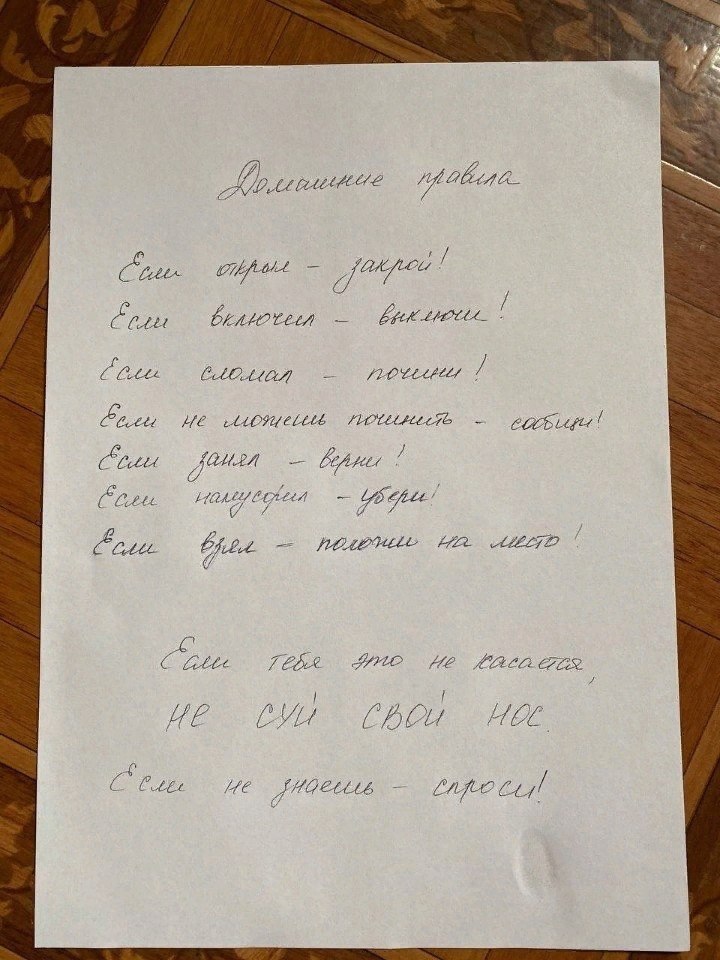 Домашние правила
Если открыл – закрой!
Если включил – выключи!
Если сломал – почини!
Если не можешь починить – сообщи!
Если занял – верни!
Если намусорил – убери!
Если взял – положи на место!
Если тебя это не касается,
НЕ СУЙ СВОЙ НОС.
Если не знаешь – спроси!